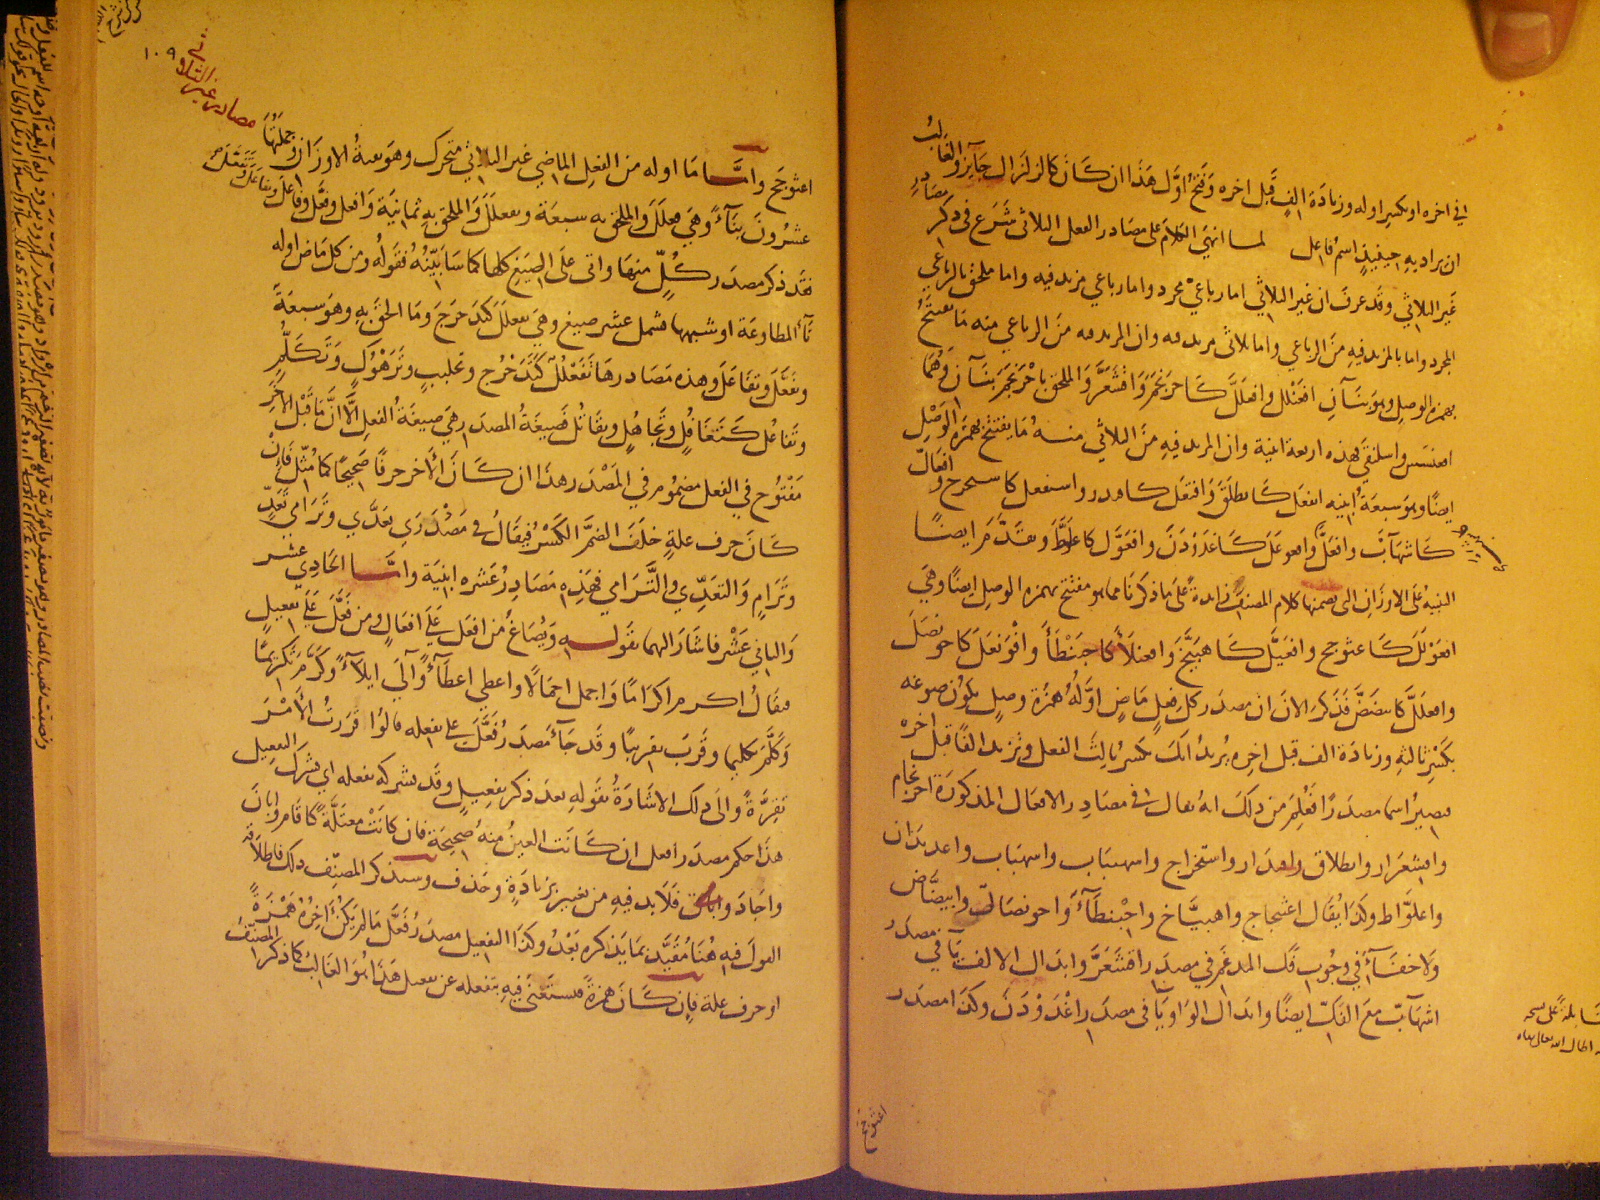 في اخره او بكسر اوله وزيادة الف قبل اخره وفتح اول هذا ان كان كالزلزال جايز والغالب
ان يراد به حينيذ اسم فاعل لما انهى الكلام على مصادر الفعل الثلاثي شرع في ذكر مصادر
غير الثلاثي وقد عرف ان غير الثلاثي اما رباعي مجرد واما رباعي مزيد فيه واما ملحق بالرباعي
المجرد واما بالمزيد فيه من الرباعي واما ثلاثي مزيد فيه وان المزيد فيه من الرباعي منه ما يفتتح
بهمزة الوصل وهو بناآن افعنلل وافعلل كاحرنجم واقشعر والملحق باحرنجم بناآن وهما
اقعنسس واسلنقى فهذه اربعة ابنية وان المزيد فيه من الثلاثي منه ما يفتتح بهمزة الوصل
ايضا وهو سبعة ابنيه انفعل كانطلق وافتعل كاقتدر واستفعل كاستخرج وافعال
كاشهاب وافعل وافعوعل كاغدودن وافعول كاعلوط وتقدم ايضا
التنبيه على الاوزان التي تضمنها كلام المصنف زايدة على ما ذكرنا مما هو مفتتح بهمزة الوصل ايضا وهي
افعولل كاعثوجج وافعيل كاهبيخ وافعنلأ كاحبنطأ وافونعل كاحونصل
وافعلل كابيضض فذكر الان ان مصدر كل فعل ماض اوله همزة وصل يكون صوغه
بكسر ثالثه وزيادة الف قبل اخره يريد انك تكسر ثالث الفعل وتزيد الفا قبل اخره
فيصير اسما مصدرا فعلم من ذلك انه يقال في مصادر الافعال المذكورة احرنجام
واقشعرار وانطلاق واقتدار واستخراج واشهيباب واشهباب واغديدان
واعلواط وكذا يقال اعثجاج واهبياخ واحبنطاء واحونصال وابيضاض
ولا خفاء في وجوب فك المدغم في مصدر اقشعر وابدال الالف يا في مصدر
اشهاب مع الفك ايضا وابدال الواو يا في مصدر اغدودن وكذا مصدر
اعثوجج
مصادر غير الثلاثي
١٠٩
اعثوجج واما ما اوله من الفعل الماضي غير الثلاثي متحرك وهو بقية الاوزان وجملتها
عشرون بناء وهي فعلل والملحق به سبعة وتفعلل والملحق به ثمانية وافعل وفعل وفاعل وتفاعل وتفعل
فقد ذكر مصدر كل منها واتى على الصيغ كلها كما سابينه فقوله ومن كل ماض اوله
تا المطاوعة او شبهها فشمل عشر صيغ وهي تفعلل كتدحرج وما الحق به وهو سبعة
وتفعل وتفاعل وهذه مصادرها تفعلل كتدحرج وتجلبب وترهوك وتكلم
وتفاعل كتغافل وتجاهل وتقاتل فصيغة المصدر هي صيغة الفعل الا ان ما قبل الاخر
مفتوح في الفعل مضموم في المصدر هذا ان كان الاخر حرفا صحيحا كما مثل فان
كان حرف علة خلف الضم الكسر فيقال في مصدري تعدي وترامي تعد
وترام والتعدي والترامي فهذه مصادر عشرة ابنية واما الحادي عشر
والثاني عشر فاشار اليهما بقوله ويصاغ من افعل على افعال ومن فعل على تفعيل
فيقال اكرم اكراما واجمل اجمالا واعطى اعطاء وآلى ايلاء وكرم تكريما
وكلم تكليما وقرب تقريبا وقد جاء مصدر فعل على تفعله قالوا قررت الامر
تقرة والى ذلك الاشارة بقوله بعد ذكر تفعيل وقد تشركه تفعله اي تشرك التفعيل
هذا حكم مصدر افعل ان كانت العين منه صحيحة فان كانت معتلة كاقام وابان
واجاد فلا بد فيه من تغيير بزيادة وحذف وسيذكر المصنف ذلك فاطلاق
القول فيه هنا مقيد بما يذكره بعد وكذا التفعيل مصدر فعل ما لم يكن اخره همزة
او حرف علة فان كان همزة فيستغنى فيه بتفعله عن تفعيل هذا هو الغالب كما ذكر المصنف